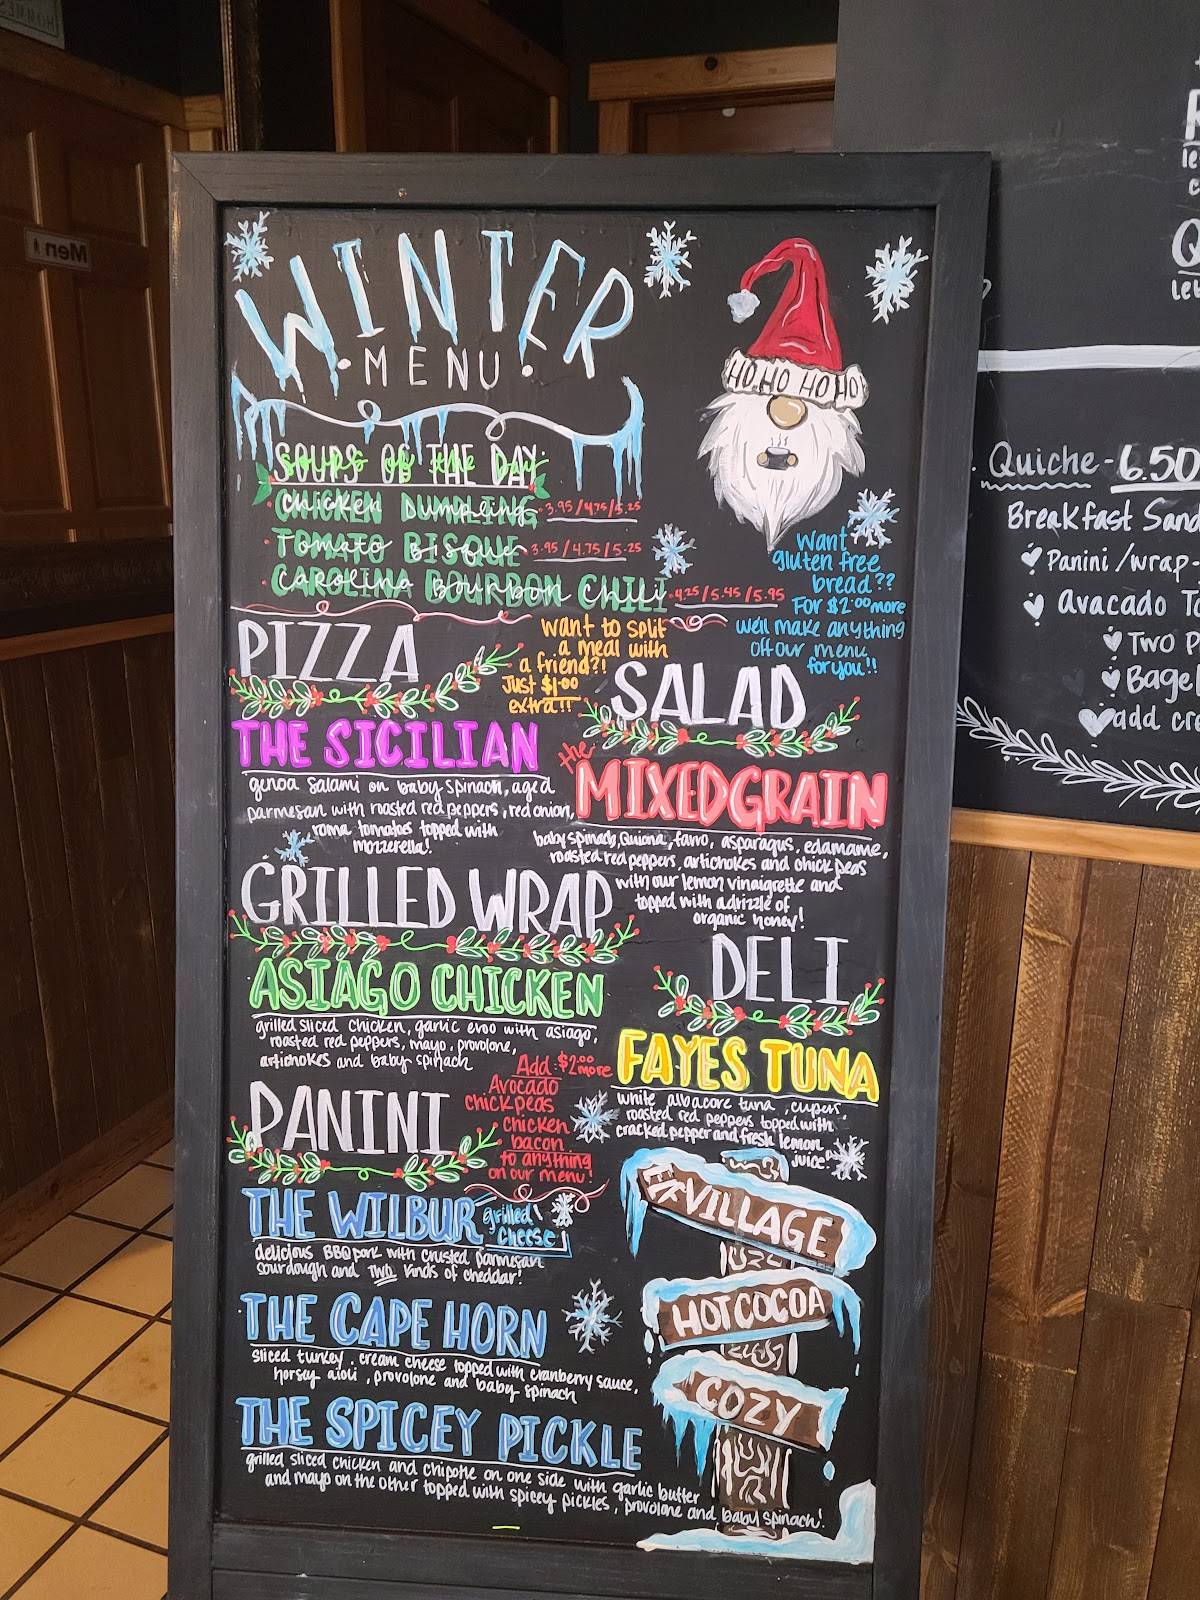 WINTER
• MENU •
HO HO HO HO
SOUPS OF THE DAY
CHICKEN DUMPLING 3.95/4.75/5.25
TOMATO BISQUE 3.95/4.75/5.25
CAROLINA BOURBON CHILI 4.25/5.45/5.95
Want
gluten free
bread??
For $2.00 more
we'll make anything
off our menu
for you!!
want to split
a meal with
a friend?!
Just $1.00
extra!!
PIZZA
THE SICILIAN
genoa salami on baby spinach, aged
parmesan with roasted red peppers, red onion,
roma tomatoes topped with
mozzerella!
SALAD
the
MIXEDGRAIN
baby spinach, Quiona, farro, asparagus, edamame,
roasted red peppers, artichokes and chick peas
with our lemon vinaigrette and
topped with a drizzle of
organic honey!
GRILLED WRAP
ASIAGO CHICKEN
grilled sliced chicken, garlic evoo with asiago,
roasted red peppers, mayo, provolone,
artichokes and baby spinach
Add $2.00 more
Avocado
chickpeas
chicken
bacon
to anything
on our menu!
DELI
FAYES TUNA
white albacore tuna, capers,
roasted red peppers topped with
cracked pepper and fresh lemon
juice.
PANINI
THE WILBUR
grilled
cheese
delicious BBQ pork with crusted parmesan
sourdough and TWO kinds of cheddar!
THE CAPE HORN
sliced turkey, cream cheese topped with cranberry sauce,
horsey aioli, provolone and baby spinach
THE SPICEY PICKLE
grilled sliced chicken and chipotle on one side with garlic butter
and mayo on the other topped with spicey pickles, provolone and baby spinach!
VILLAGE
HOT COCOA
COZY
Men
Quiche - 6.50
Breakfast Sand
Panini /wrap -
avacado To
Two P
Bagel
add cr